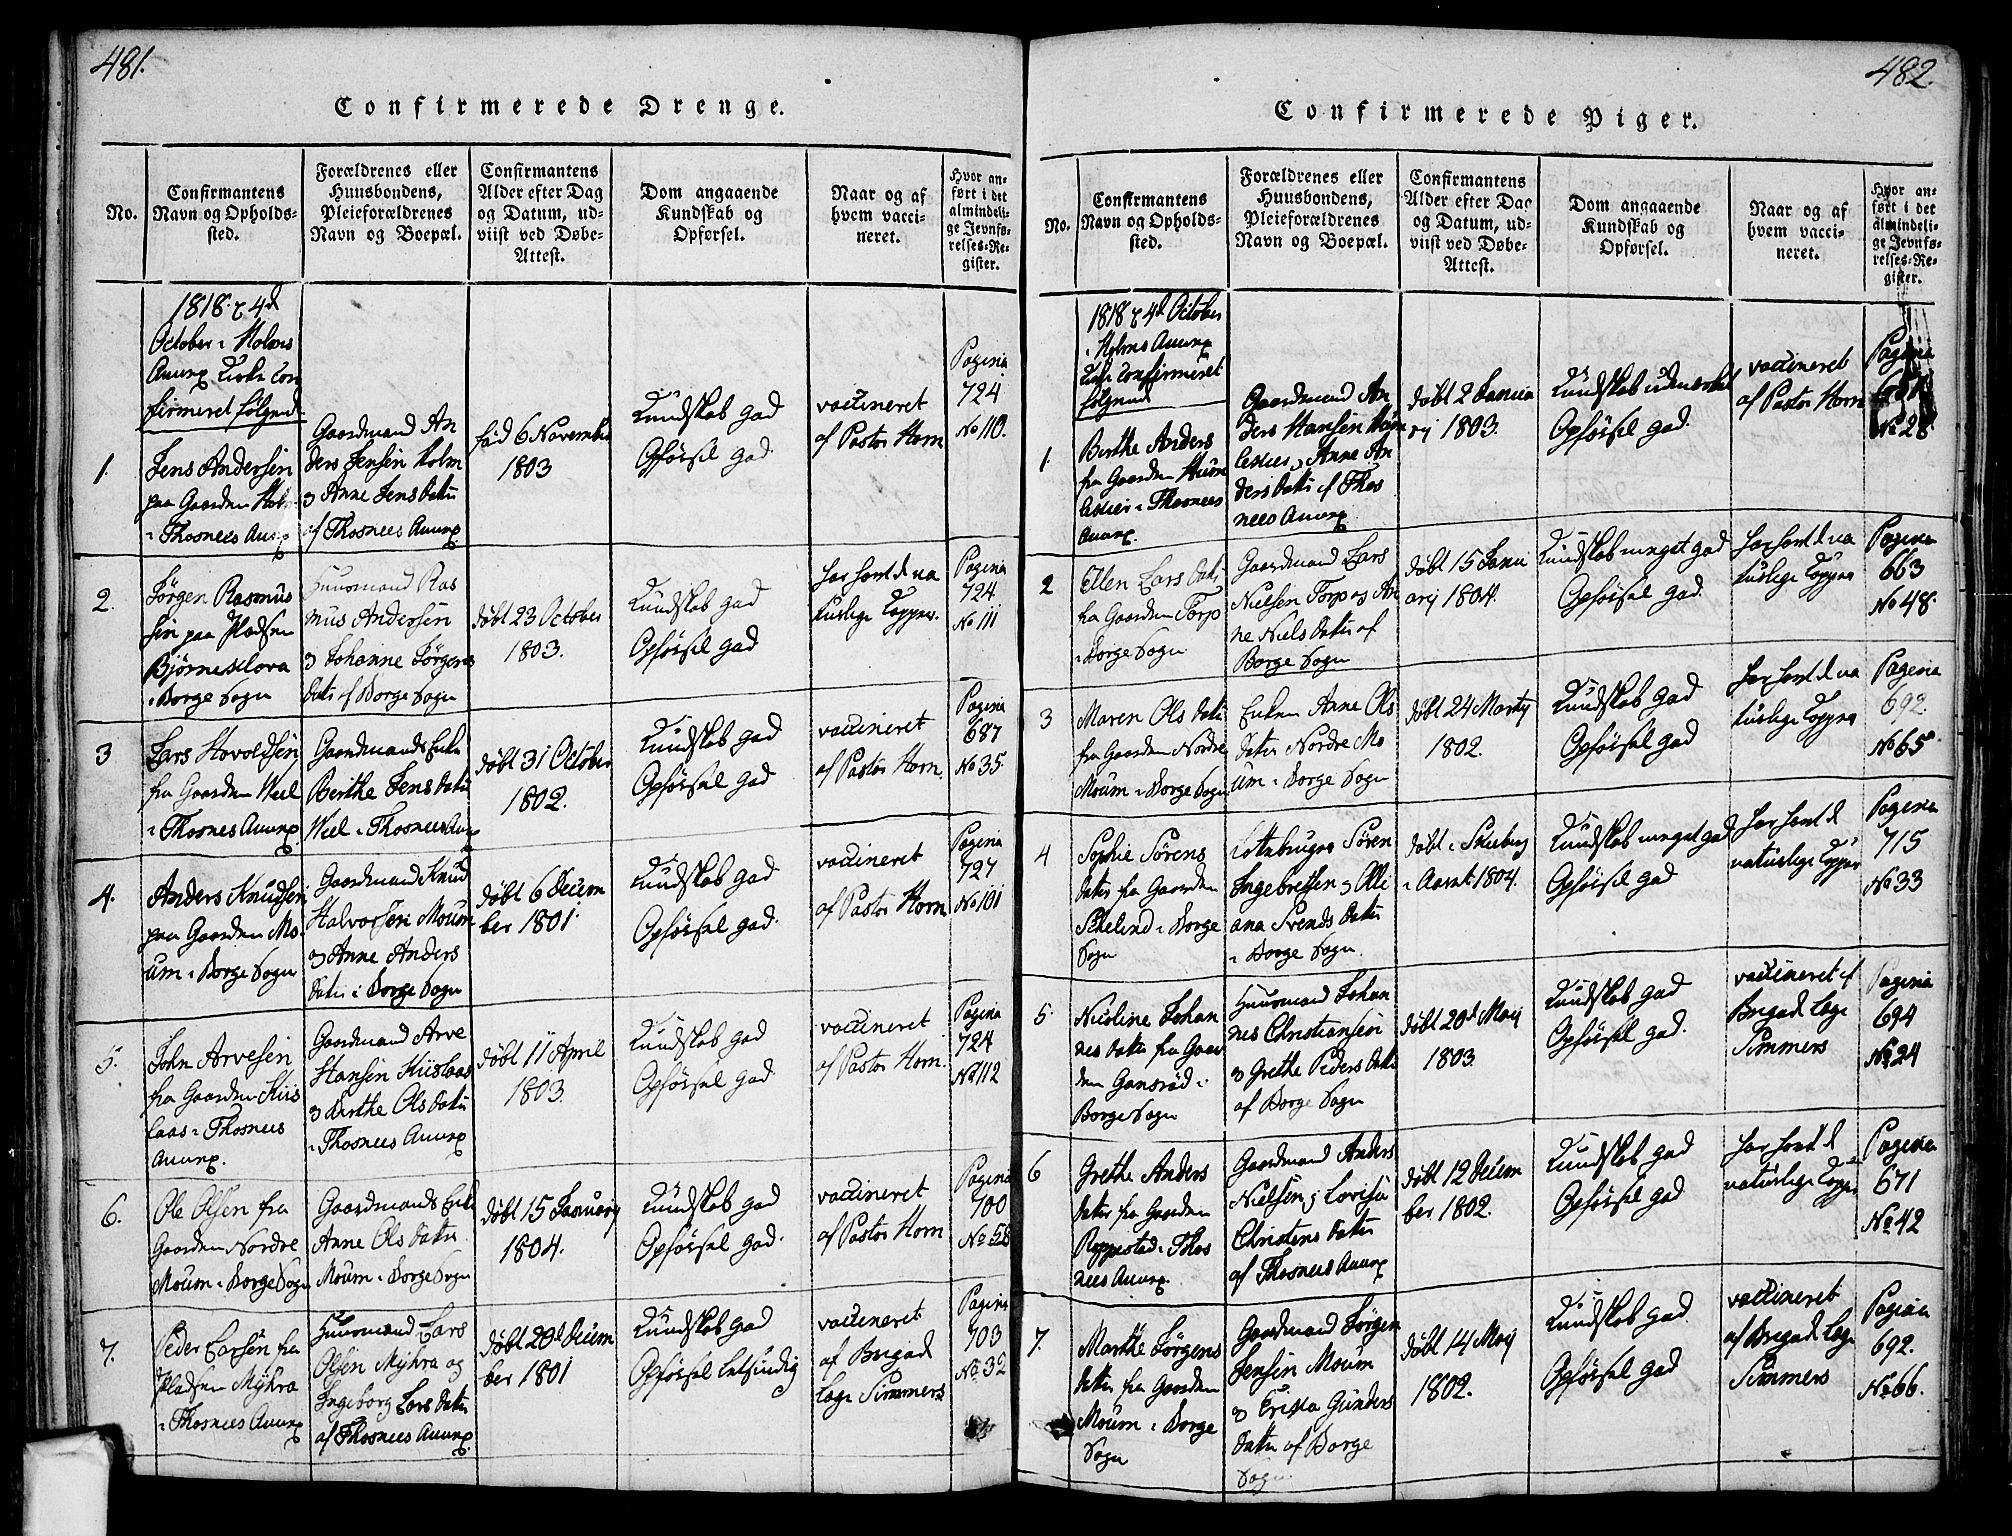 481.
Confirmerede Drenge.
No.
Confirmantens
Navn og Opholds-
sted.
Forældrenes eller
Huusbondens,
Pleieforældrenes
Navn og Boepæl.
Confirmantens
Alder efter Dag
og Datum, ud-
viist ved Døbe-
Attest.
Dom angaaende
Kundskab og
Opførsel.
Naar og af
hvem vacci-
neret.
Hvor an-
ført i det
almindeli-
ge Jevnfø-
relses-Re-
gister.
1818. d 4d
October i Holms
Annex Kirke con
firmeret følgende
1.
Jens Andersen
paa Gaarden Holm
i Thosnees Annex
Gaardmand An
ders Jensen Holm
og Anne Jens Datter
af Thosnees Annex
fød 6 November
1803
Kundskab god
Opførsel god.
vaccineret
af Pastor Horn
Pagina
724
No 110.
2.
Jörgen Rasmus
sen paa Pladsen
Björneklova
i Borge Sogn
Huusmand Ras
mus Andersen
og Johanne Jörgens
Datter af Borge Sogn
døbt 23 October
1803.
Kundskab god
Opførsel god
har havt de na
turlige Kopper.
Pagina
724
No 111
3
Lars Havoldsen
fra Gaarden Weel
i Thosnes Annex
Gaardmands Enke
Berthe Jens Datter
Weel i Thosnees Annex
døbt 31 October
1802.
Kundskab god
Opførsel god
vaccineret
af Pastor Horn.
Pagina
687
No 35.
4.
Anders Knudsen
paa Gaarden Mo-
um i Borge Sogn
Gaardmand Knud
Halvorsen Moum
og Anne Anders
Datter i Borge Sogn
døbt 6 Decem
ber 1801.
Kundskab god
Opførsel god.
vaccineret
af Pastor Horn
Pagina
727
No 101
5.
John Arvesen
fra Gaarden Kiis
laas i Thosnees
Annex.
Gaardmand Arve
Hansen Kiislaas
og Berthe Ols Datter
i Thosnees Annex
døbt 11 April
1803.
Kundskab god
Opførsel god
vaccineret
af Pastor Horn.
Pagina
724
No 112
6.
Ole Olsen fra
Gaarden Nordre
Moum i Borge Sogn
Gaardmands Enke
Anne Ols Datter
Moum i Borge Sogn
døbt 15 Januarij
1804.
Kundskab god
Opførsel god.
vaccineret
af Pastor Horn
Pagina
700
No 58
7.
Peder Larsen fra
Pladsen Myhra
i Thosnees Annex
Huusmand Lars
Olsen Myhra og
Ingeborg Lars Datter
af Thosnees Annex
døbt 20d Decem
ber 1801
Kundskab god
Opførsel letsindig
vaccineret
af Brigad
Læge Simmers
Pagina
703
No 32
482.
Confirmerede Piger.
No.
Confirmantens
Navn og Opholds-
sted.
Forældrenes eller
Huusbondens,
Pleieforældrenes
Navn og Boepæl.
Confirmantens
Alder efter Dag
og Datum, ud-
viist ved Døbe-
Attest.
Dom angaaende
Kundskab og
Opførsel.
Naar og af
hvem vacci-
neret.
Hvor an-
ført i det
almindeli-
ge Jevnfø-
relses-Re-
gister.
1818 d 4d October
i Holms Annex
Kirke confirmeret
følgende
1.
Berthe Anders
fra Gaarden
i Thosnees
Annex.
Gaardmand An
ders Hansen
og Anne An
ders Datter af Thos
nees Annex.
døbt 2 Janua
rij 1803.
Kundskab udmærket
Opførsel god.
vaccineret
af Pastor Horn
Pagina
No 28
2
Ellen Lars Datter
fra Gaarden Torp
i Borge Sogn
Gaardmand Lars
Nielsen Torp og An
ne Niels Datter af
Borge Sogn
døbt 15 Janu
arij 1804.
Kundskab meget god
Opførsel god.
har havt de na
turlige Kopper
Pagina
663
No 48.
3
Maren Ols Datter
fra Gaarden Nordre
Moum i Borge Sogn
Enken Anne Ols
Datter Nordre Mo
um i Borge Sogn
døbt 24 Martij
1802.
Kundskab god
Opførsel god
har havt de na
turlige Kopper
Pagina
692
No 65.
4
Sophie Sörens
Datter fra Gaarden
i Borge
Sogn
Sören
Ingebretsen og Olli
ana Svends Datter
i Borge Sogn.
døbt i Skieberg
i Aaret 1804.
Kundskab meget god
Opførsel god
har havt de
naturlige Kopper
Pagina
715
No 33
5.
Nicoline Johan
nes Datter fra Gaar
den Gansröd i
Borge Sogn
Huusmand Johan
nes Christiansen
og Grethe Peders Datter
af Borge Sogn
døbt 20d Maij
1803.
Kundskab god
Opførsel god.
vaccineret af
Brigad Læge
Simmers
Pagina
694
No 24
6
Grethe Anders
Datter fra Gaarden
Reppestad i Thos
nees Annex.
Gaardmand Anders
Nielsen og Lovisa
Christens Datter
af Thosnees Annex
døbt 12 Decem
ber 1802.
Kundskab god
Opførsel god
har havt de
naturlige Kopper
Pagina
671
No 42
7.
Marthe Jörgens
Datter fra Gaarden
Moum i Borge
Sogn
Gaardmand Jörgen
Jensen Moum
og Gunders
Datter af Borge
Sogn.
døbt 14 Maij
1802.
Kundskab god
Opførsel god
vaccineret
af Brigad Læge
Simmers
Pagina
692.
No 66.